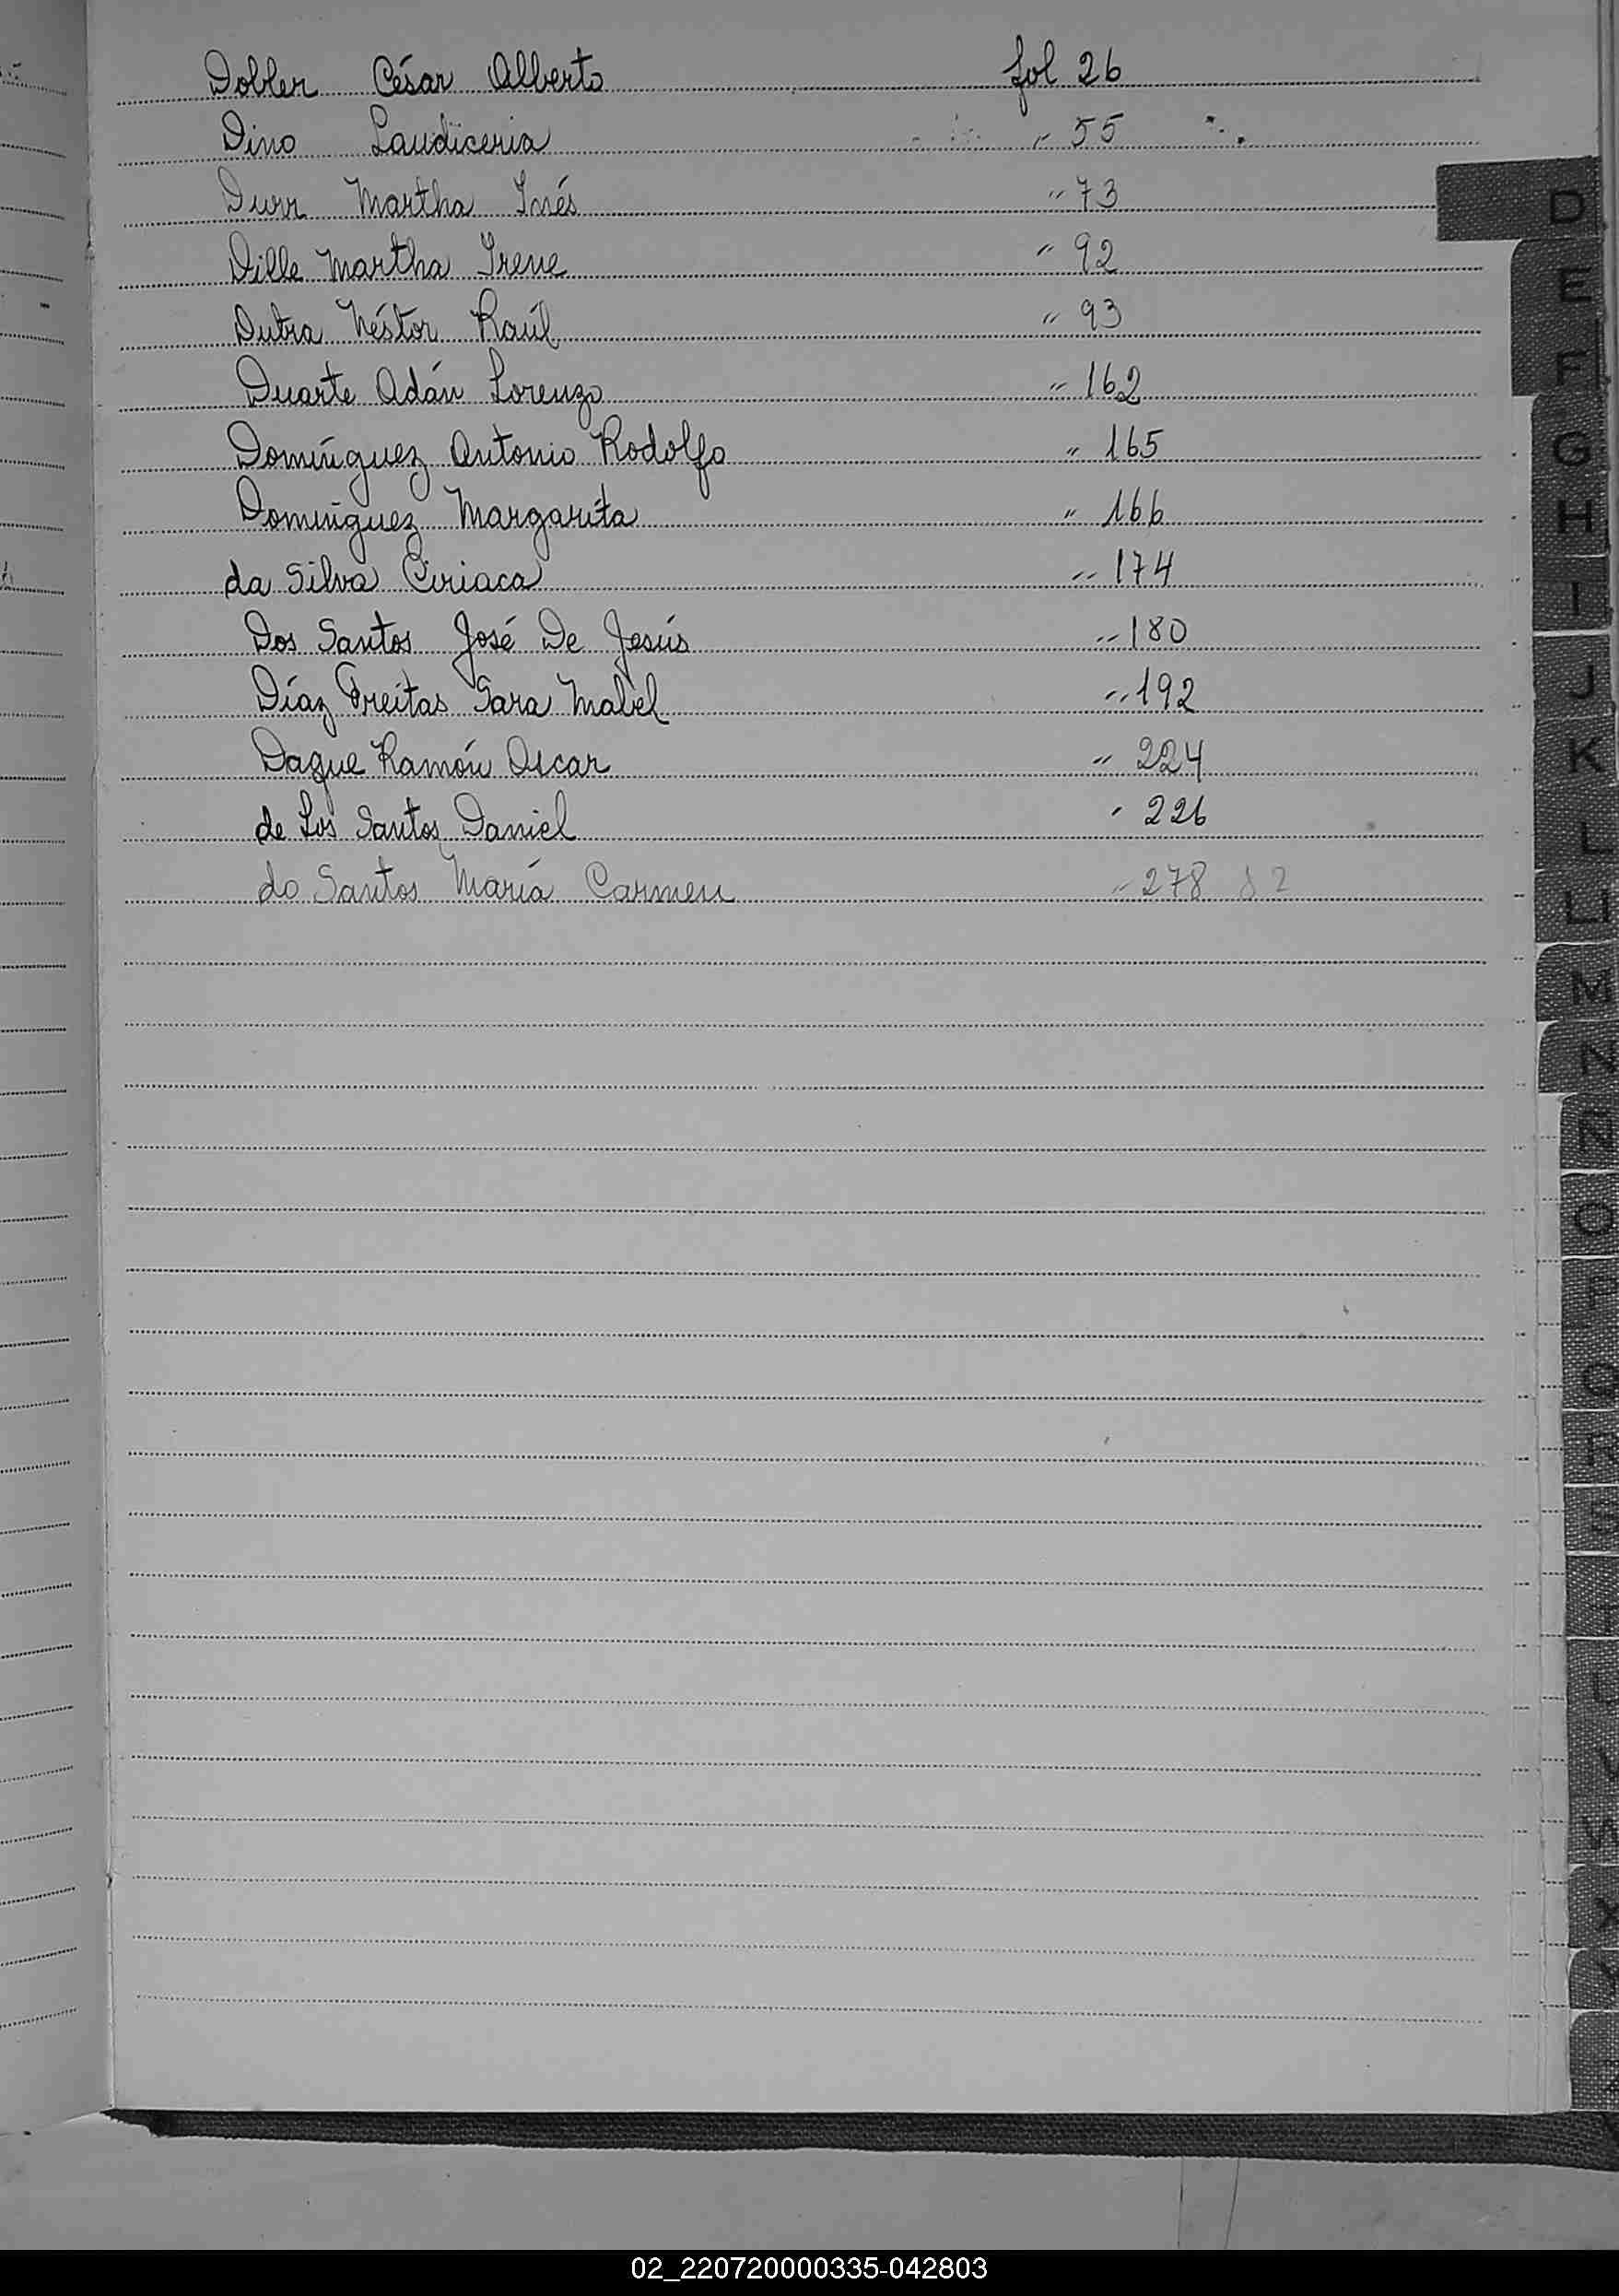 Dobler César Alberto fol 26
Dino Laudiceria " 55
Durr Martha Inés " 73
Dille Martha Irene " 92
Dutra Néstor Raúl " 93
Duarte Adán Lorenzo " 162
Domínguez Antonio Rodolfo " 165
Domínguez Margarita " 166
da Silva Ciriaca " 174
Dos Santos José De Jesús " 180
Díaz Freitas Sara Mabel " 192
Daque Ramón Oscar " 224
de Los Santos Daniel " 226
do Santos María Carmen " 278 82
D
E
F
G
H
I
J
K
L
LL
M
N
Ñ
O
P
Q
R
S
T
U
V
W
X
Y
02_220720000335-042803